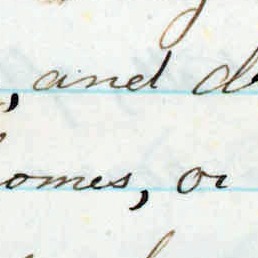 , and
omes, or